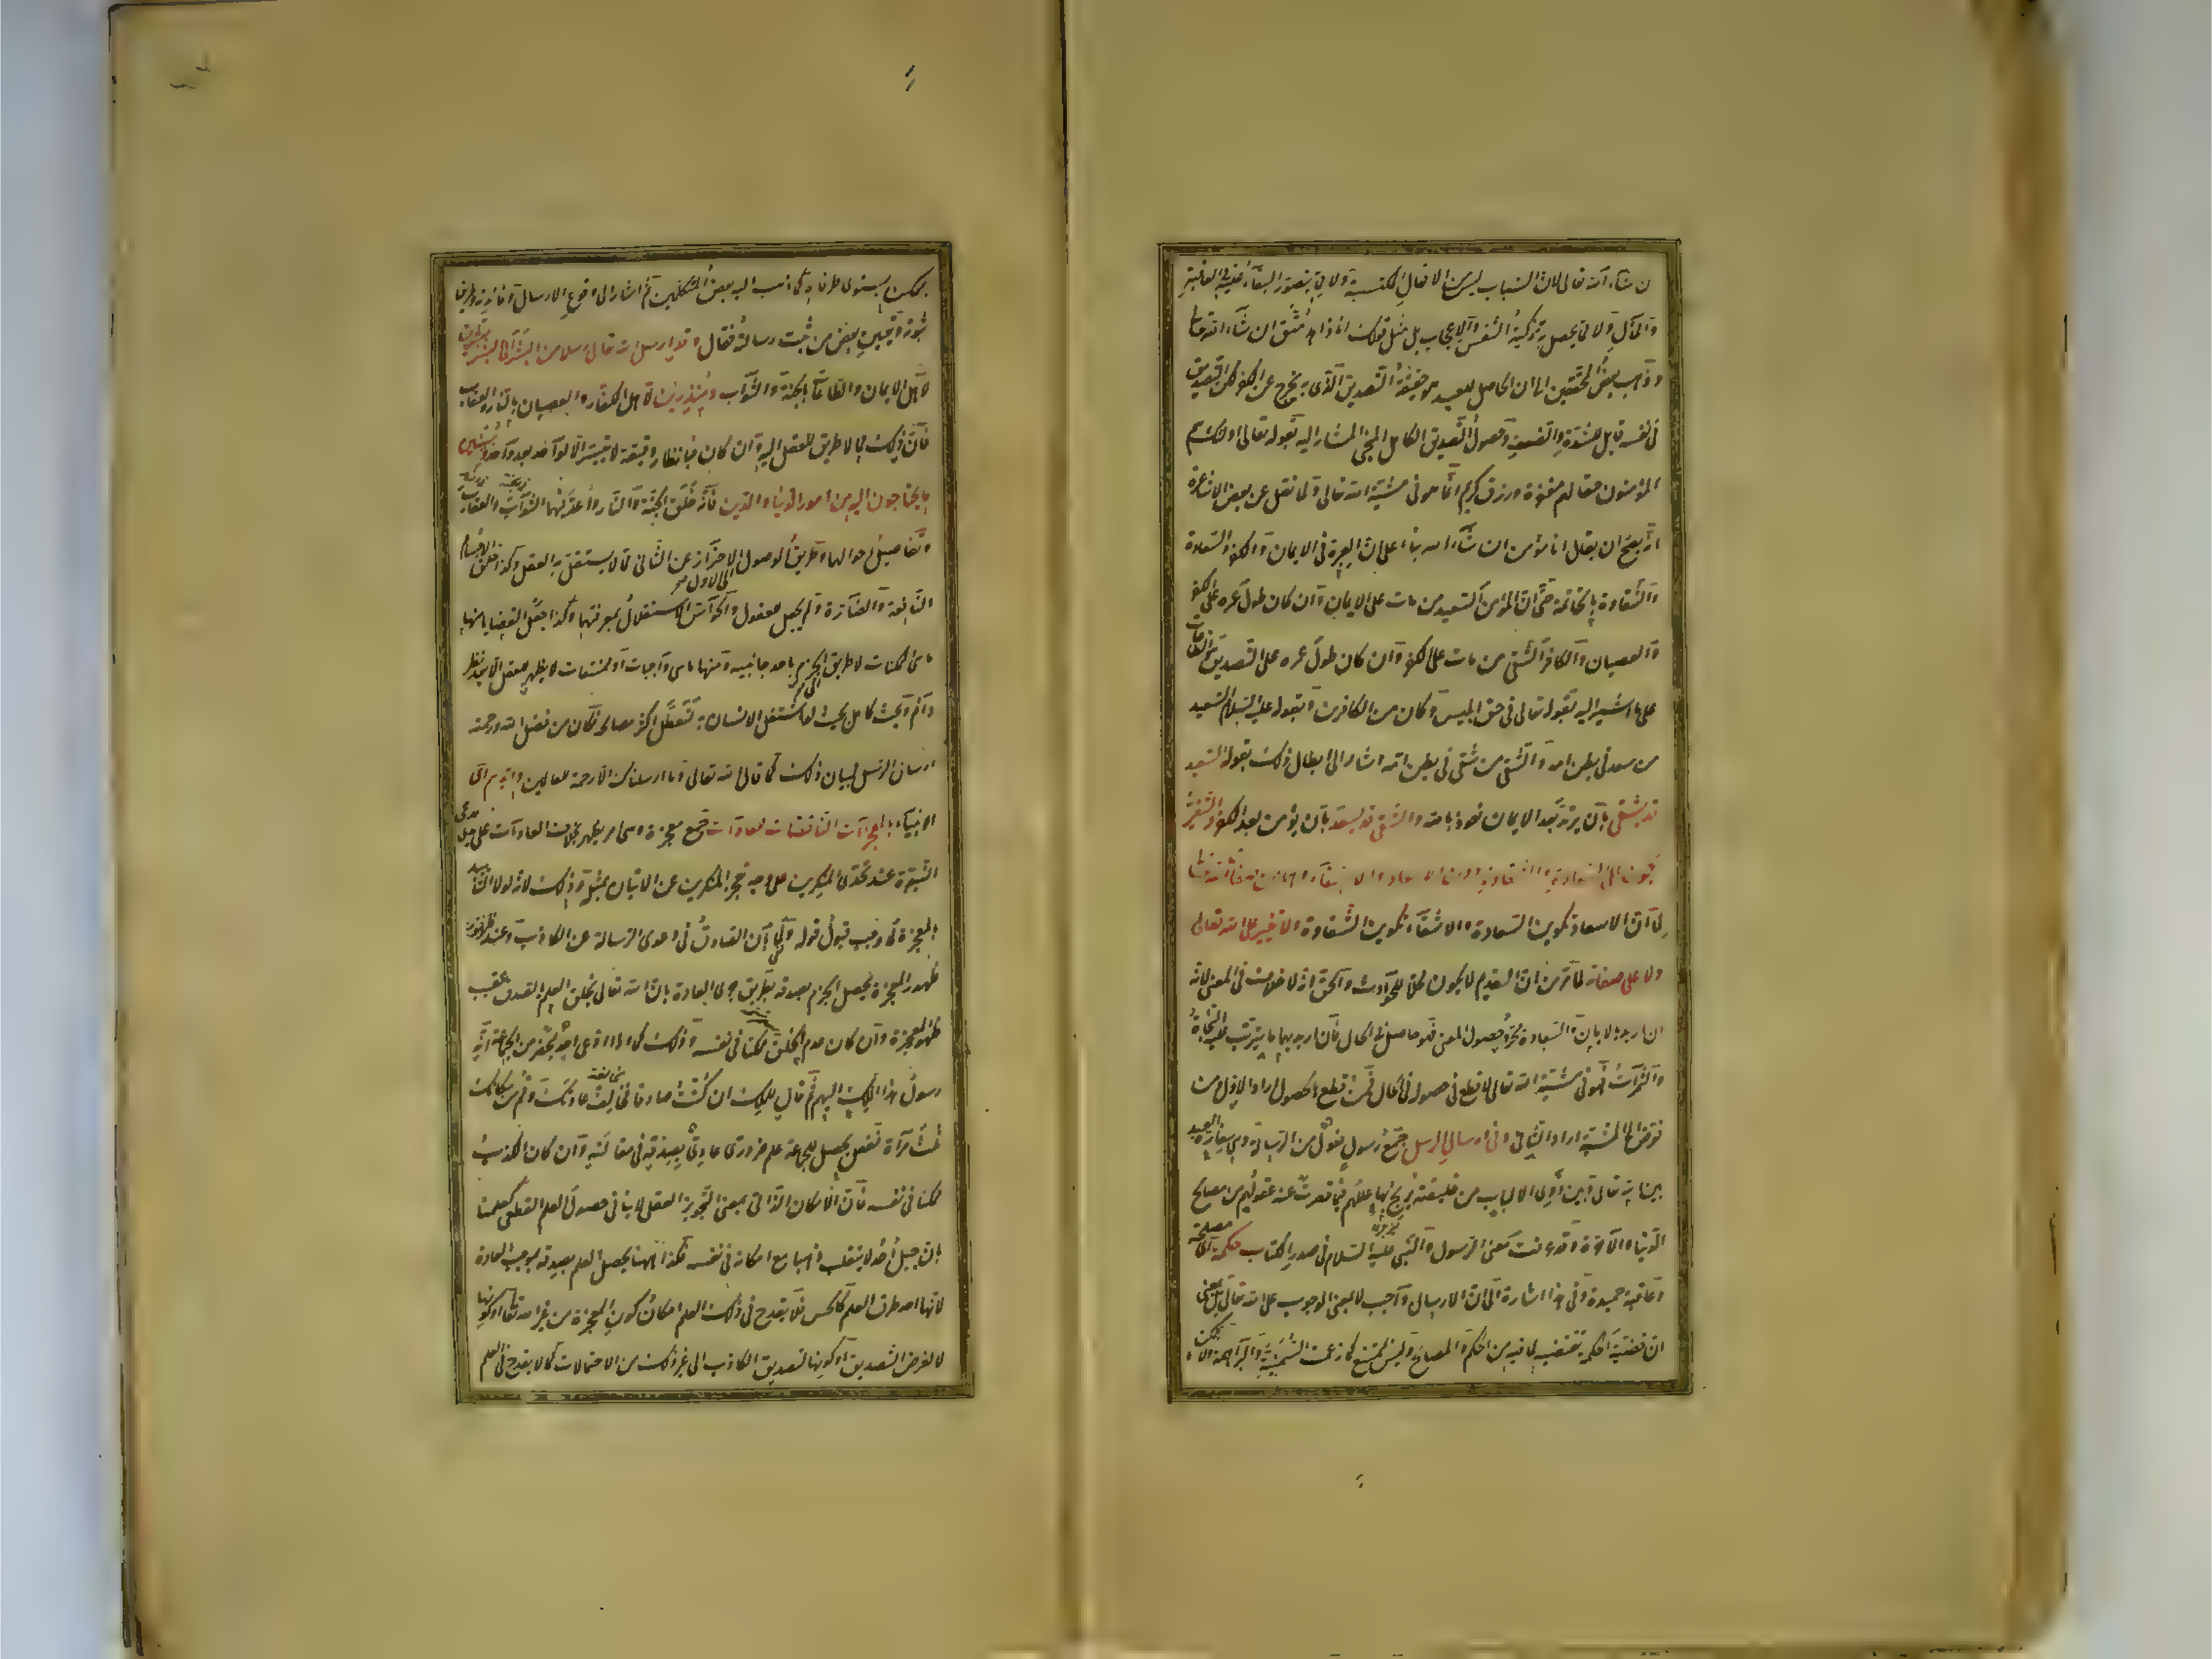 ن شاء الله تعالى لان الشباب ليس من الافعال المكتسبة ولا مما يتصور البقاء عليه في العاقبة
والمآل ولا مما يحصل به تزكية النفس والاعجاب بل مثل قولك انا زاهد متق ان شاء الله تعالى
وذهب بعض المحققين الى ان الحاصل للعبد هو حقيقة التصديق الذي به يخرج عن الكفر لكن التصديق
في نفسه قابل للشدة والضعف وحصول التصديق الكامل المنجي المشار اليه بقوله تعالى اولئك هم
المؤمنون حقا لهم مغفرة ورزق كريم انما هو في مشية الله تعالى ولما نقل عن بعض الاشاعرة
انه يصح ان يقال انا مؤمن ان شاء الله بناء على ان العبرة في الايمان والكفر والسعادة
والشقاوة بالخاتمة حتى ان المؤمن السعيد من مات على الايمان وان كان طول عمره على الكفر
والعصيان والكافر الشقي من مات على الكفر وان كان طول عمره على التصديق والطاعات
على ما اشير اليه بقوله تعالى في حق ابليس وكان من الكافرين وبقوله عليه السلام السعيد
من سعد في بطن امه والشقي من شقي في بطن امه اشار الى ابطال ذلك بقوله السعيد
قد يشقى بان يرتد بعد الايمان نعوذ بالله والشقي قد يسعد بان يؤمن بعد الكفر والتغير
يكون على السعادة والشقاوة دون الاسعاد والاشقاء وهما من صفات الله تعالى
لما ان الاسعاد تكوين السعادة والاشقاء تكوين الشقاوة ولا تغير على الله تعالى
ولا على صفاته لما مر من ان القديم لا يكون محلا للحوادث والحق انه لا خلاف في المعنى لانه
ان اريد بالايمان والسعادة مجرد حصول المعنى فهو حاصل في الحال وان اريد بهما ما يترتب عليه النجاة
والثمرات فهو في مشية الله تعالى لا قطع في حصوله في الحال فمن قطع بالحصول اراد الاول ومن
فوض الى المشية اراد الثاني وفي ارسال الرسل جمع رسول فعول من الرسالة وهي سفارة العبد
بين الله تعالى وبين ذوي الالباب من خليقته ليزيح بها عللهم فيما قصرت عنه عقولهم من مصالح
الدنيا والآخرة وقد عرفت معنى الرسول والنبي عليه السلام في صدر الكتاب حكمة اي مصلحة
وعاقبة حميدة وفي هذا اشارة الى ان الارسال واجب لا بمعنى الوجوب على الله تعالى بل بمعنى
ان قضية الحكمة تقتضيه لما فيه من الحكم والمصالح وليس بممتنع كما زعمت السمنية والبراهمة ولا
بممكن يستوي طرفاه كما ذهب اليه بعض المتكلمين ثم اشار الى وقوع الارسال وفائدته وطريق
ثبوته وتعيين بعض من ثبت رسالته فقال وقد ارسل الله تعالى رسلا من البشر الى البشر مبشرين
لاهل الايمان والطاعات بالجنة والثواب ومنذرين لاهل الكفر والعصيان بالنار والعقاب
فان ذلك مما لا طريق للعقل اليه وان كان فبانظار دقيقة لا يتيسر الا لواحد بعد واحد ومبينين
ما يحتاجون اليه من امور الدنيا والدين فانه خلق الجنة والنار واعد فيهما الثواب والعقاب
وتفاصيل احوالهما وطريق الوصول الى الاول والاحتراز عن الثاني مما لا يستقل به العقل وكذا خلق الاجسام
النافعة والضارة ولم يجعل للعقول والحواس الاستقلال بمعرفتهما وكذا جعل القضايا منها
ما هي ممكنات لا طريق الى الجزم باحد جانبيه ومنها ما هي واجبات او ممتنعات لا يظهر للعقل الا بعد نظر
دائم وبحث كامل بحيث لو اشتغل الانسان به لتعطل اكثر مصالحه فكان من فضل الله ورحمته
ارسال الرسل لبيان ذلك كما قال الله تعالى وما ارسلناك الا رحمة للعالمين وايدهم اي
الانبياء بالمعجزات الناقضات للعادات جمع معجزة وهي امر يظهر بخلاف العادات على يدي مدعي
النبوة عند تحدي المنكرين على وجه يعجز المنكرين عن الاتيان بمثله وذلك لانه لولا التأييد
بالمعجزة لما وجب قبول قوله ولما بان الصادق في دعوى الرسالة عن الكاذب وعند
ظهور المعجزة يحصل الجزم بصدقه بطريق جري العادة بان الله تعالى يخلق العلم بالصدق عقيب
ظهور المعجزة وان كان عدم الخلق ممكنا في نفسه وذلك كما اذا ادعى احد بمحضر من الجماعة انه
رسول هذا الملك اليهم ثم قال للملك ان كنت صادقا فخالف عادتك وقم من مكانك
ثلث مرات ففعل يحصل للجماعة علم ضروري عادي بصدقه في مقالته وان كان الكذب
ممكنا في نفسه فان الامكان الذاتي بمعنى التجويز العقلي لا ينافي حصول العلم القطعي كعلمنا
بان جبل احد لا ينقلب ذهبا مع امكانه في نفسه فكذا ههنا يحصل العلم بصدقه بموجب العادة
لانها احد طرق العلم كالحس فلا يقدح في ذلك العلم امكان كون المعجزة من غير الله تعالى او كونها
لا لغرض التصديق او كونها لتصديق الكاذب الى غير ذلك من الاحتمالات كما لا يقدح في العلم